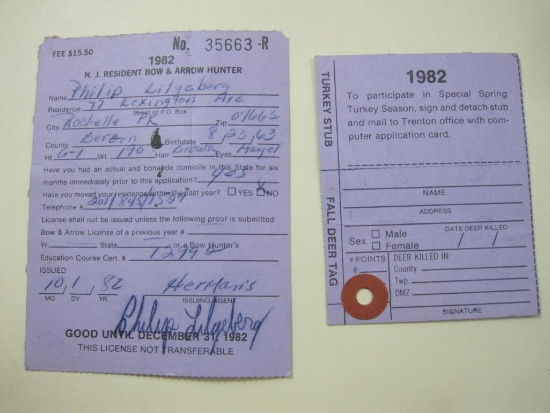 FEE $15.50
No. 35663-R
1982
N. J. RESIDENT BOW & ARROW HUNTER
Name Philip Lilgeberg
Residence 77 Lexington Ave
Street or P.O. Box
City Rochelle Pk Zip 07662
County Bergen Birthdate 8/23/63
Ht. 6-1 Wt. 190 Hair Brown Eyes Hazel
Have you had an actual and bonafide domicile in this State for six
months immediately prior to this application? yes
Have you moved your residence within the past year? YES NO
Telephone # 201/845/
License shall not be issued unless the following proof is submitted:
Bow & Arrow License of a previous year #
Yr. State or a Bow Hunter's
Education Course Cert. #
ISSUED
10 1 82 Herman's
MO. DY. YR. ISSUING AGENT
Philip Lilgeberg
GOOD UNTIL DECEMBER 31, 1982
THIS LICENSE NOT TRANSFERABLE
TURKEY STUB
FALL DEER TAG
1982
To participate in Special Spring
Turkey Season, sign and detach stub
and mail to Trenton office with com-
puter application card.
NAME
ADDRESS
DATE DEER KILLED
Sex Male
Female / /
# POINTS DEER KILLED IN:
R County
Twp.
DMZ
SIGNATURE